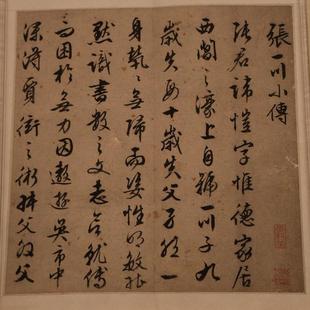 張一川小傳
張君諱愷字惟德家居
西閶之濠上自號一川子九
歲失母十歲失父孑然一
身煢煢無歸而姿性明敏
默識書數之文志欲就傅
而困於無力因遨遊吳市中
深得賈衒之術